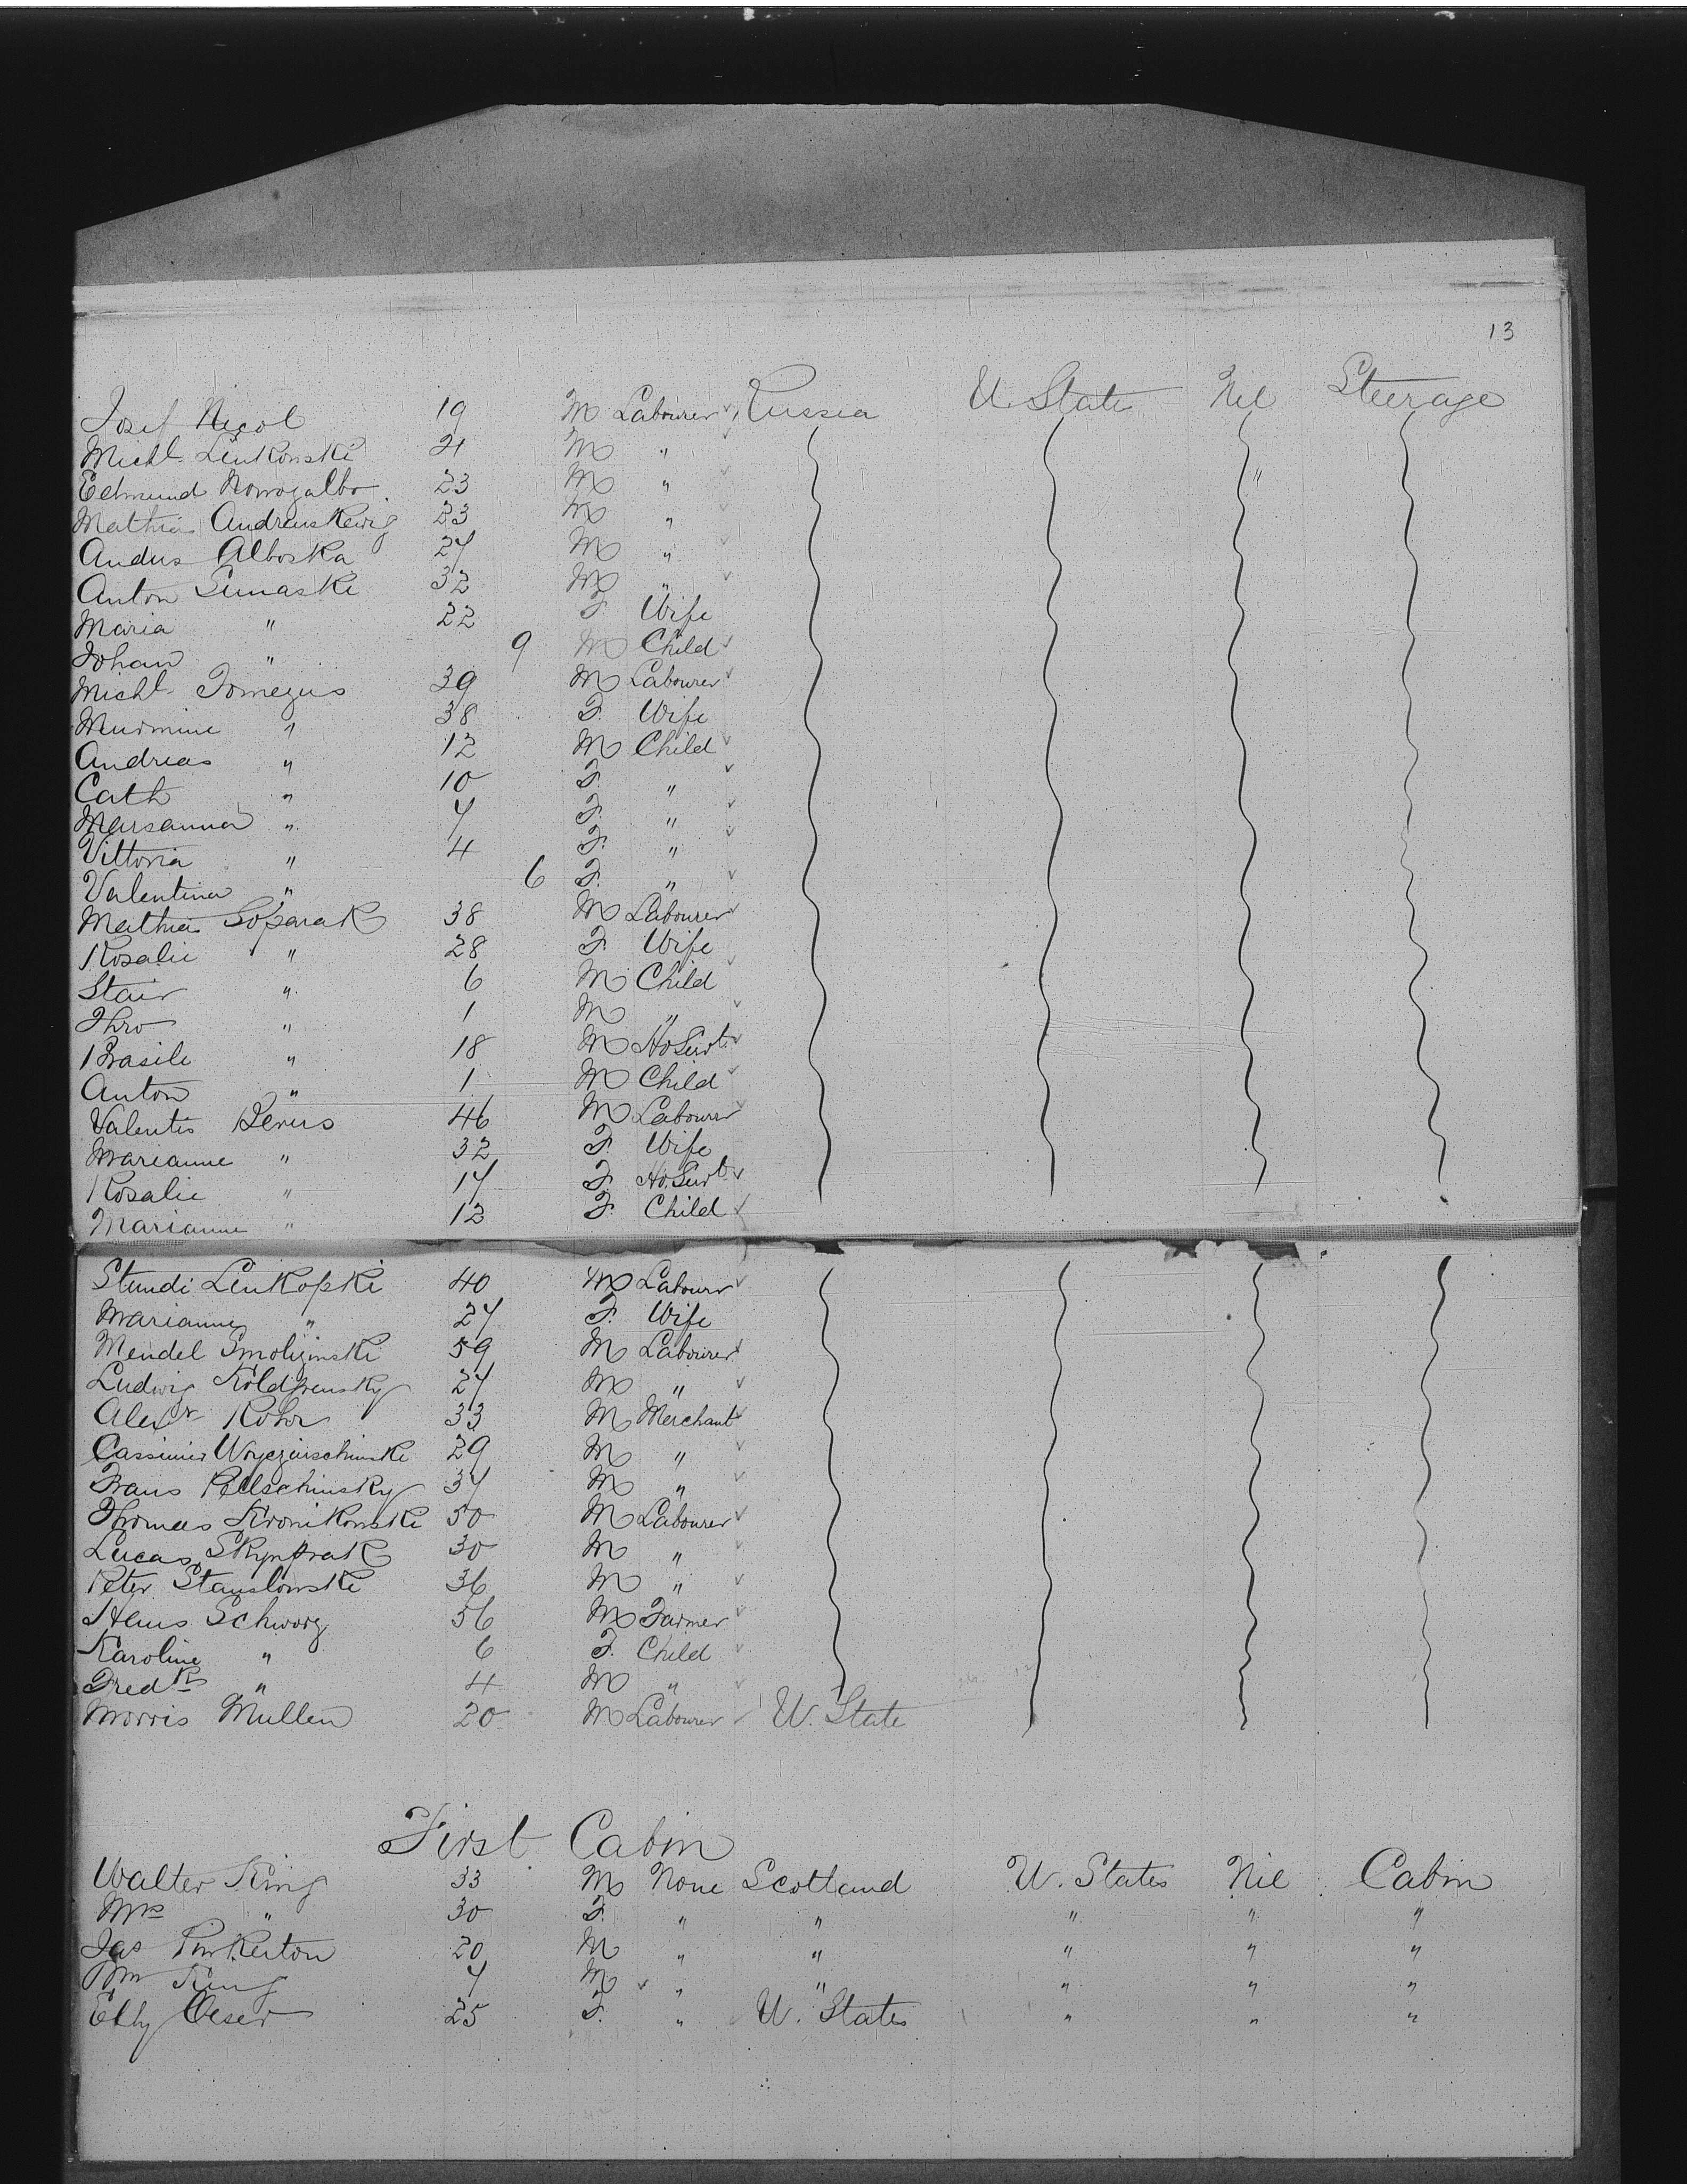 13
Josef Negol 19 M Labourer Russia U. State Nil Steerage
Michl. Linkonski 21 M "
Edmund Nowogalbo 23 M " "
Mathias Andruskewig 23 M "
Andus Alboska 24 M "
Anton Simaski 32 M "
Maria " 22 F. Wife
Johan " 9 M Child
Michl. Tomezus 39 M Labourer
" 38 F. Wife
Andreas " 12 M Child
Cath " 10 F. "
Marsanna " 7 F. "
Vittoria " 4 F. "
Valentina " 6 F. "
Mathias Soparak 38 M Labourer
Rosalie " 28 F. Wife
Stair " 6 M Child
Thro " 1 M "
Brasile " 18 M Ho Servt.
Anton " 1 M Child
Valentis Berus 46 M Labourer
Marianne " 32 F. Wife
Rosalie " 14 F. Ho. Servt.
Marianne " 12 F. Child
Stundi Linkopski 40 M Labourer
Marianne " 24 F. Wife
Mendel Smolizinski 59 M Labourer
Ludwig 24 M "
Alexr. Rohr 33 M Merchant
Cassimir 29 M "
Frans Pellschinsky 34 M "
Thomas Kronikonski 50 M Labourer
Lucas 30 M "
Peter Stanslowski 36 M "
Hans Schworz 56 M Farmer
Karoline " 6 F. Child
Fredk " 4 M "
Morris Mullen 20 M Labourer U. State
First Cabin
Walter King 33 M None Scotland U. States Nil Cabin
Mrs " 30 F. " " " " "
Jas Pinkerton 20 M " " " " "
Wm King 7 M " " " " "
Elly Oeser 25 F. " U. States " " "